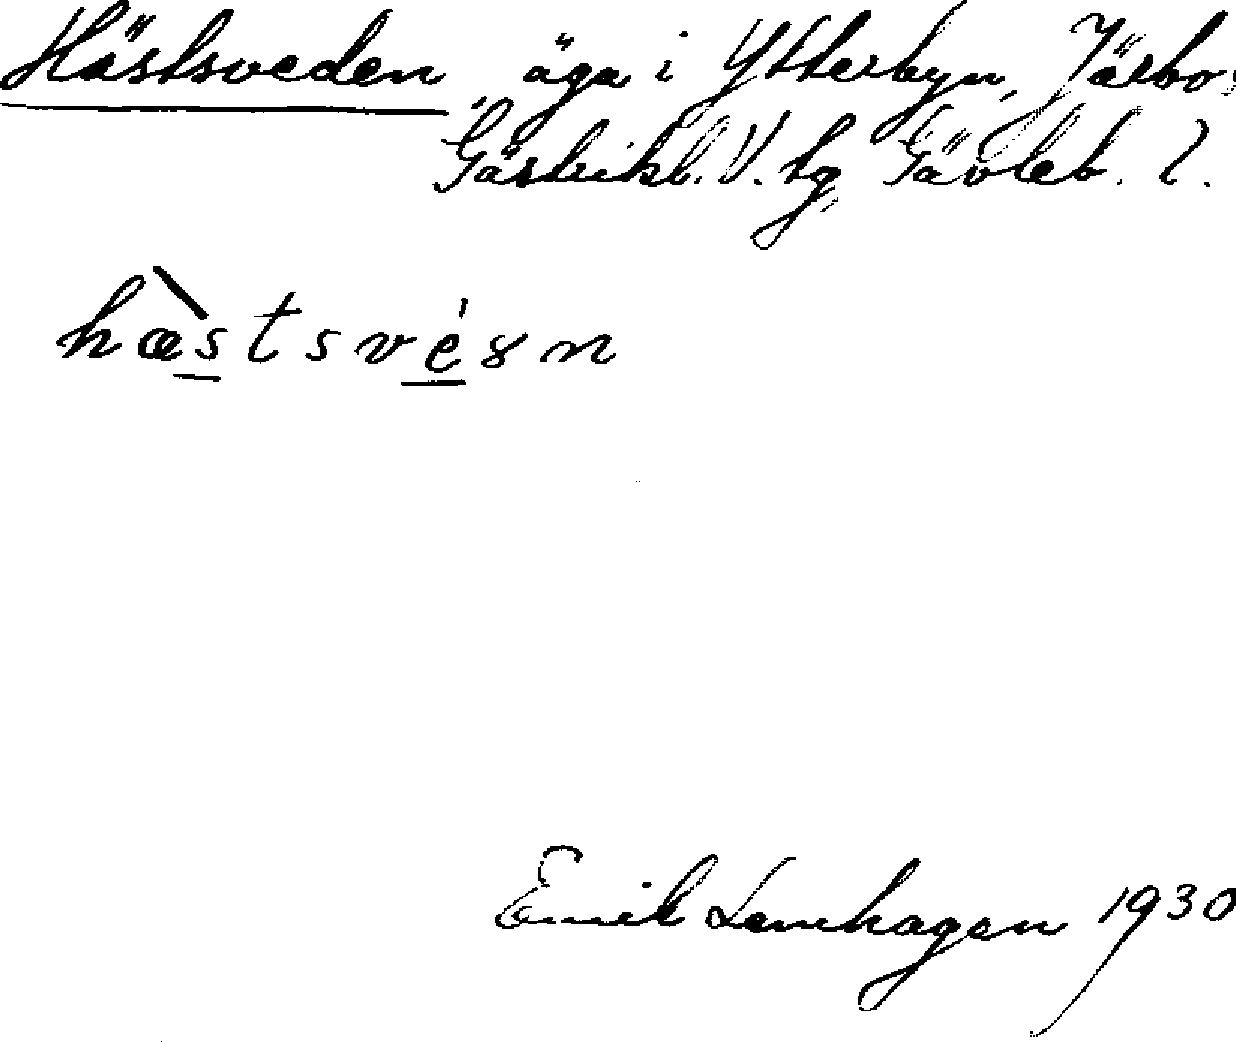 Hästsveden äga i Ytterbyn, Järbo s
Gästrikl. V. tg, Gävleb. l.
hæ̀stsvéɤn
Emil Lenhagen 1930